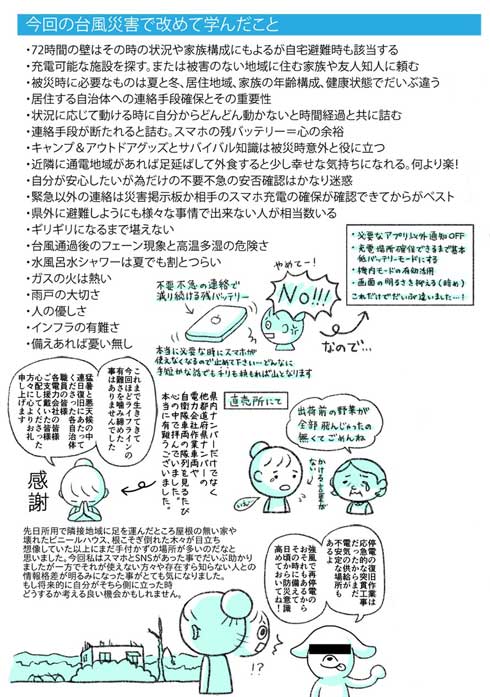 今回の台風災害で改めて学んだこと
・72時間の壁はその時の状況や家族構成にもよるが自宅避難時も該当する
・充電可能な施設を探す。または被害のない地域に住む家族や友人知人に頼む
・被災時に必要なものは夏と冬、居住地域、家族の年齢構成、健康状態でだいぶ違う
・居住する自治体への連絡手段確保とその重要性
・状況に応じて動ける時に自分からどんどん動かないと時間経過と共に詰む
・連絡手段が断たれると詰む。スマホの残バッテリー＝心の余裕
・キャンプ＆アウトドアグッズとサバイバル知識は被災時意外と役に立つ
・近隣に通電地域があれば足延ばして外食すると少し幸せな気持ちになれる。何より楽!
・自分が安心したいが為だけの不要不急の安否確認はかなり迷惑
・緊急以外の連絡は災害掲示板か相手のスマホ充電の確保が確認できてからがベスト
・県外に避難しようにも様々な事情で出来ない人が相当数いる
・ギリギリになるまで堪えない
・台風通過後のフェーン現象と高温多湿の危険さ
・水風呂水シャワーは夏でも割とつらい
・ガスの火は熱い
・雨戸の大切さ
・人の優しさ
・インフラの有難さ
・備えあれば憂い無し
・必要なアプリ以外通知OFF
・充電場所確保できるまで基本
低バッテリーモードにする
・機内モードの有効活用
・画面の明るさを抑える(暗め)
これだけでだいぶ違いました…!
やめてー!
No!!!
不要不急の連絡で
減り続ける残バッテリー
なので…
本当に必要な時にスマホが
使えなくなるので止めて下さい…どんなに
手短かな話でもチリも積もれば山となります
これまで生きてきて
今回ほどライフラインの
有難さを噛み締めた
事はありませんでした
猛暑と悪天候の中
連日復旧にあたって
くださった各自治体
職員の皆様
各電力会社の皆様
ご支援くださった皆様
心配してくださった
方々に心よりお礼
申し上げます
感謝
県内ナンバーだけでなく
他都道府県ナンバーの
電力会社作業車両や
自衛隊車両の隊列を見るたび
心の中で拝んでいました。
本当に有難うございました。
直売所にて
出荷前の野菜が
全部飛んじゃったの
無くてごめんね
かける言葉が
ない
先日所用で隣接地域に足を運んだところ屋根の無い家や
壊れたビニールハウス、根こそぎ倒れた木々が目立ち
想像していた以上にまだ手付かずの場所が多いのだなと
思いました。今回私はスマホとSNSがあった事でだいぶ助かり
ましたが一方でそれが使えない方々や存在すら知らない人との
情報格差が明るみになった事がとても気になりました。
もし将来的に自分がそちら側に立った時
どうするか考える良い機会かもしれません。
停電の復旧作業は
応急的な突貫工事
だったからまだ
電気の供給が
不安定な場所も
あるよ
強風で再停電の
おそれもあるから
その時に備えて
日頃から防災意識
高めておいてね!
!?